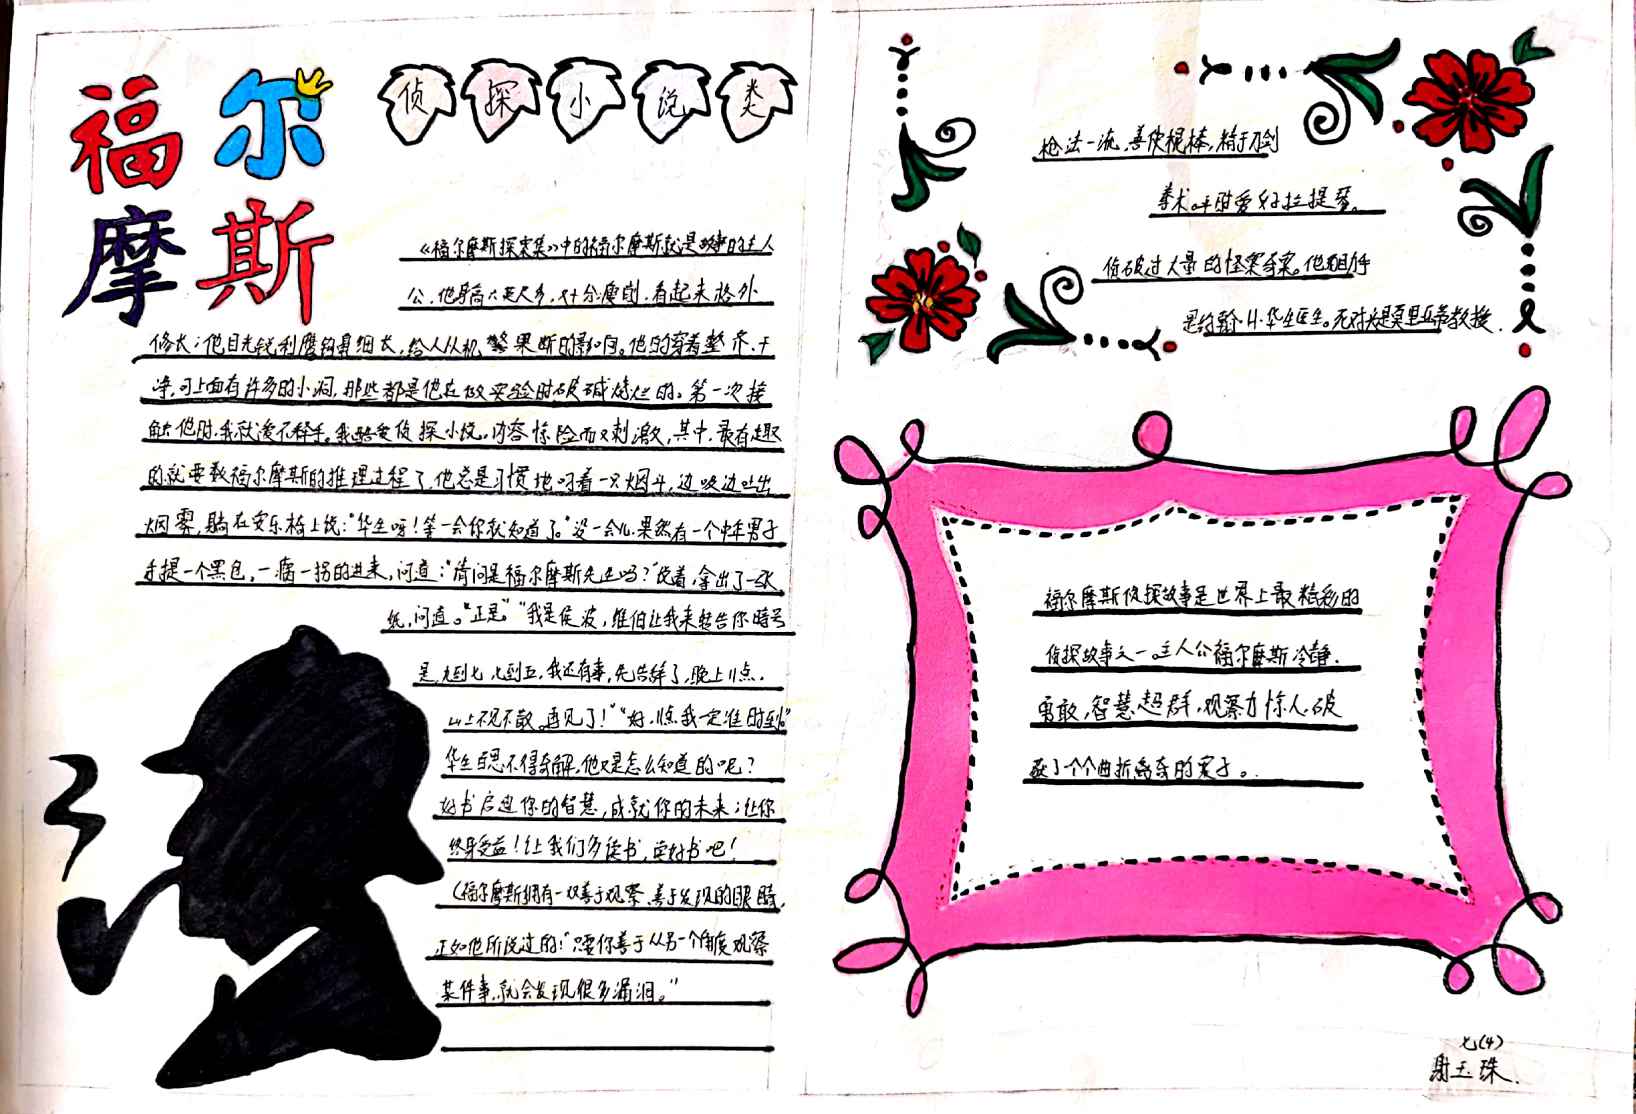 福尔
摩斯
侦探小说类
《福尔摩斯探案集》中的福尔摩斯就是故事的主人
公，他身高六英尺多，身分瘦削，看起来格外
修长；他目光锐利鹰钩鼻细长，给人从机警果断的影响。他的穿着整齐、干
净，可上面有许多的小洞，那些都是他在做实验时被碱烧烂的。第一次接
触他时，我就爱不释手。我酷爱侦探小说。内容惊险而又刺激，其中，最有趣
的就要数福尔摩斯的推理过程了，他总是习惯地叼着一只烟斗，边吸边吐出
烟雾，躺在安乐椅上说：“华生呀！等一会你就知道了。”没一会儿果然有一个中年男子
手提一个黑包，一瘸一拐的进来，问道：“请问是福尔摩斯先生吗？”说着，拿出了一张
纸，问道。“正是”“我是侯波，维伯让我来转告你暗号
是，九到七，七到五，我还有事，先告辞了，晚上11点，
山上不见不散，再见了！”“好，11点我一定准时到”
华生百思不得其解，他又是怎么知道的呢？
好书启迪你的智慧，成就你的未来；让你
终身受益！让我们多读书，读好书吧！
（福尔摩斯拥有一双善于观察、善于发现的眼睛，
正如他所说过的：“只要你善于从另一个角度观察
某件事，就会发现很多漏洞。”
枪法一流，善使棍棒，精于刀剑
拳术。平时爱好拉提琴。
侦破过大量的怪案奇案。他的助手
是约翰·H·华生医生。死对头是莫里亚蒂教授．
福尔摩斯侦探故事是世界上最精彩的
侦探故事之一。主人公福尔摩斯冷静、
勇敢，智慧超群，观察力惊人，破
获了个个曲折离奇的案子。
七(4)
谢玉珠．